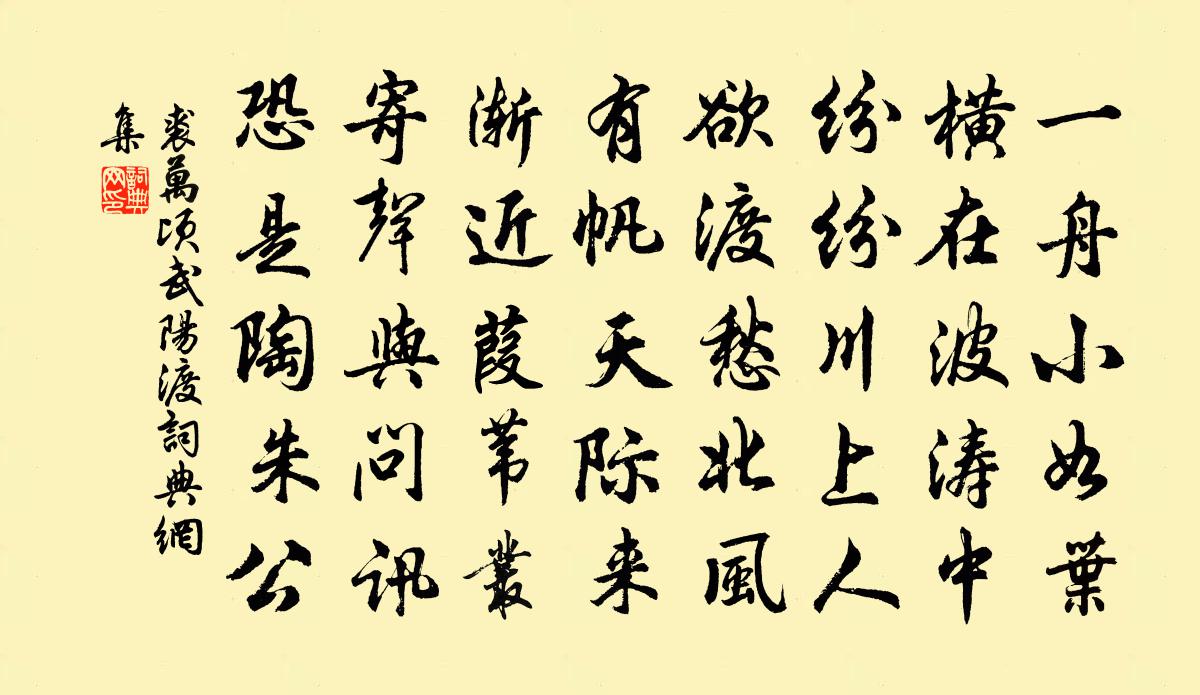 一舟小如葉
橫在波涛中
紛紛川上人
欲渡愁北風
有帆天际来
渐近葭苇叢
寄聲與問訊
恐是陶朱公
裘萬頃武陽渡詞典網
集
詞典
网印